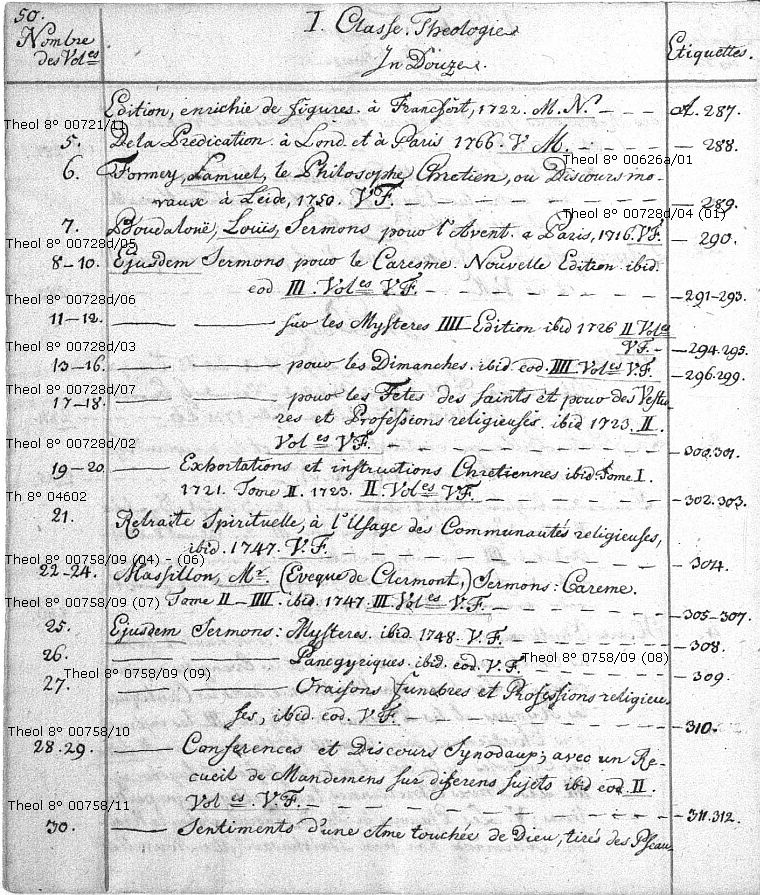 50.
Nombre des Vol.es
I. Classe. Theologie.
In Douze.
Etiquettes.
Edition, enrichie de figures. à Francfort, 1722. M. N.° — A. 287.
Theol 8° 00721/11
5. De la Predication. à Lond. et à Paris 1766. V M. — 288.
Theol 8° 00626a/01
6. Formey, Samuel, le Philosophe Chretien, ou Discours mo-
raux à Leide, 1750. VF. — 289.
Theol 8° 00728d/04 (01)
7. Bourdaloüe, Loüis, Sermons pour l'Avent. a Paris, 1716. VF. — 290.
Theol 8° 00728d/05
8-10. Ejusdem Sermons pour le Caresme. Nouvelle Edition. ibid.
eod. III. Vol es VF. — 291-293.
Theol 8° 00728d/06
11-12. — — sur les Mysteres IIII Edition ibid 1726 II Vol es
VF. — 294.295.
Theol 8° 00728d/03
13-16. — — pour les Dimanches. ibid. eod. IIII. Vol es VF. — 296.299.
Theol 8° 00728d/07
17-18. — — pour les Fetes des Saints et pour des Vestu-
res et Professions religieuses. ibid 1723. II.
Vol es VF. — 300.301.
Theol 8° 00728d/02
19-20. — Exhortations et instructions Chretiennes ibid. Tome I.
1721. Tome II. 1723. II. Vol es VF. — 302.303.
Th 8° 04602
21. Retraite Spirituelle, à l'Usage des Communautés religieuses,
ibid. 1747. V.F. — 304.
Theol 8° 00758/09 (04) - (06)
22-24. Massillon, Mr. (Eveque de Clermont,) Sermons: Careme.
Theol 8° 00758/09 (07)
Tome II - IIII. ibid. 1747. III. Vol es V.F. — 305-307.
25. Ejusdem Sermons: Mysteres. ibid. 1748. V.F. — 308.
26. — — Panegyriques. ibid. eod. V.F. — 309.
Theol 8° 0758/09 (08)
Theol 8° 0758/09 (09)
27. — — Oraisons funebres et Professions religieu-
ses, ibid. eod. V.F. — 310.
Theol 8° 00758/10
28.29. — Conferences et Discours Synodaux; avec un Re-
cueil de Mandemens sur differens sujets ibid eod. II.
Vol es. V.F. — 311.312.
Theol 8° 00758/11
30. — Sentiments d'une Ame touchée de Dieu, tirés des Pseau-